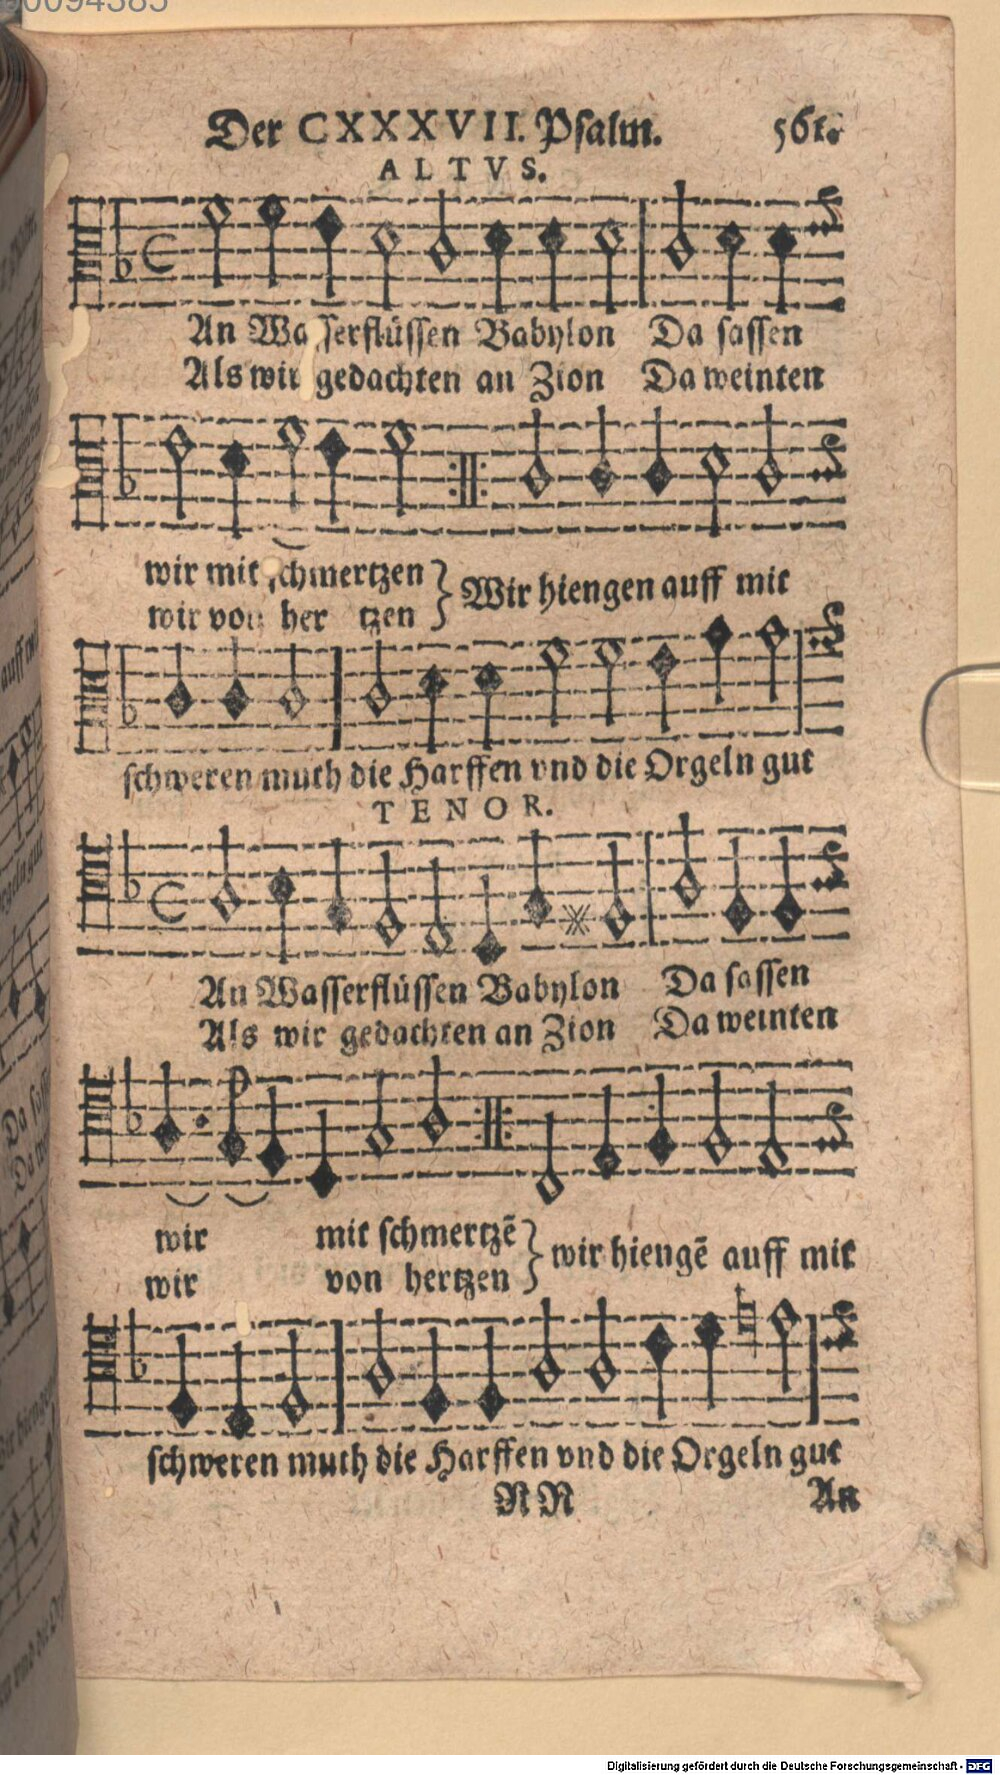 00094385
Der CXXXVII. Psalm. 561.
ALTVS.
An Wasserflüssen Babylon Da sassen
Als wir gedachten an Zion Da weinten
wir mit schmertzen } Wir hiengen auff mit
wir von her tzen
schweren muth die Harffen vnd die Orgeln gut
TENOR.
An Wasserflüssen Babylon Da sassen
Als wir gedachten an Zion Da weinten
wir mit schmertzẽ } wir hiengẽ auff mit
wir von hertzen
schweren muth die Harffen vnd die Orgeln gut
RR An
Digitalisierung gefördert durch die Deutsche Forschungsgemeinschaft - DFG